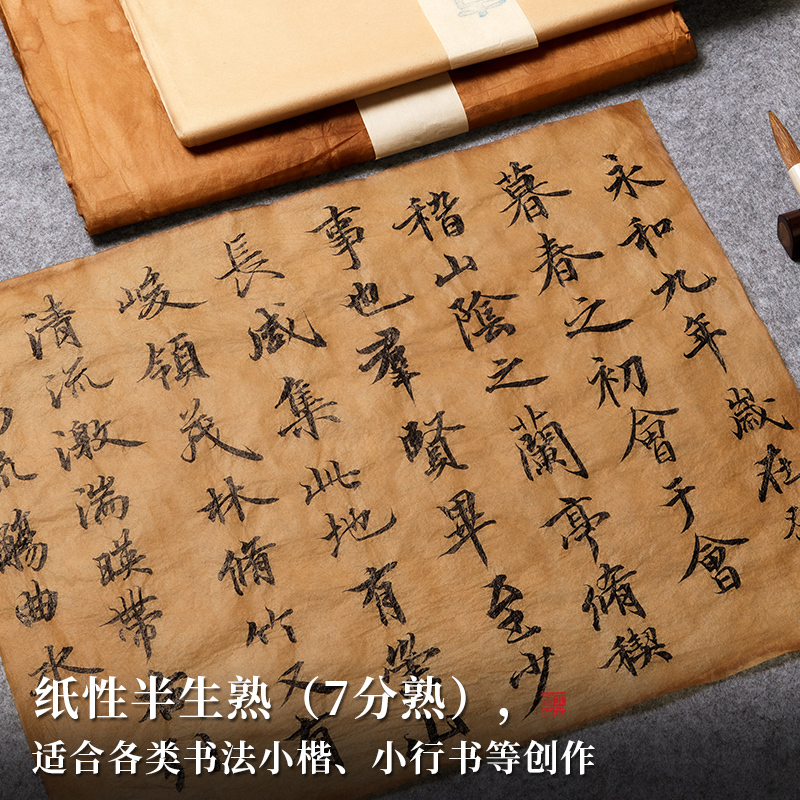 永和九年歲在
暮春之初會于會
稽山陰之蘭亭脩禊
事也羣賢畢至少
長咸集此地有崇山
峻領茂林脩竹又有
清流激湍暎帶
流觴曲水
纸性半生熟（7分熟），
适合各类书法小楷、小行书等创作